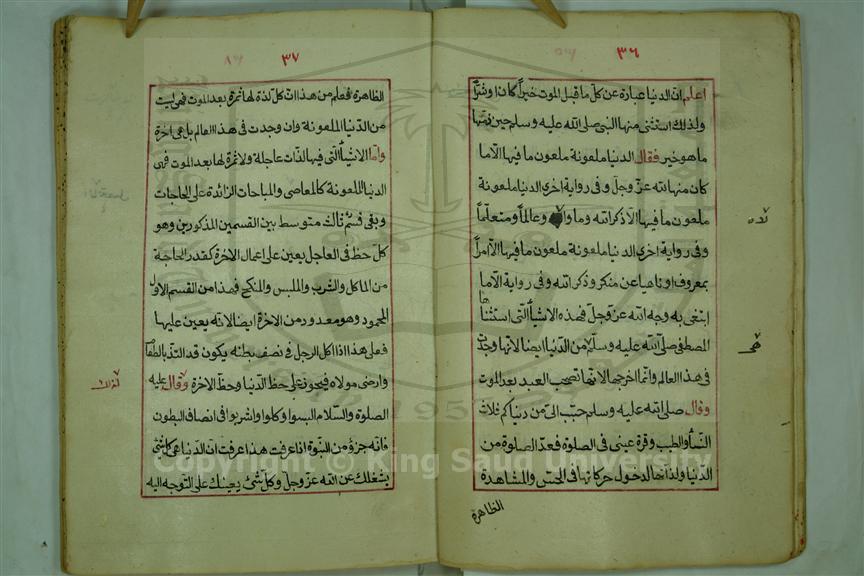 ٣٦
اعلم ان الدنيا عبارة عن كل ما قبل الموت خيرا كان او شرا
ولذلك استثنى منها النبى صلى الله عليه وسلم حين ذمها
ما هو خير فقال الدنيا ملعونة ملعون ما فيها الا ما
كان منها لله عز وجل وفى رواية اخرى الدنيا ملعونة
ملعون ما فيها الا ذكر الله وما والاه وعالما ومتعلما
لاه
وفى رواية اخرى الدنيا ملعونة ملعون ما فيها الا امرا
بمعروف او ناهيا عن منكر وذكر الله وفى رواية الا ما
ابتغى به وجه الله عز وجل فهذه الاشياء التى استثناها
المصطفى صلى الله عليه وسلم من الدنيا ايضا لانها وجدت
هى
فى هذا العالم وانما اخرجها لانها تصحب العبد بعد الموت
وقال صلى الله عليه وسلم حبب الى من دنياكم ثلاث
النساء والطيب وقرة عينى فى الصلوة فعد الصلوة من
الدنيا ولذاتها لدخول حركاتها فى الحس والمشاهدة
الظاهرة
٣٧
الظاهرة فعلم من هذا ان كل لذة لها ثمرة بعد الموت فهى ليست
من الدنيا الملعونة وان وجدت فى هذا العالم بل هى اخرة
واما الاشياء التى فيها لذات عاجلة ولا ثمرة لها بعد الموت فهى
الدنيا الملعونة كالمعاصى والمباحات الزائدة على الحاجات
وبقى قسم ثالث متوسط بين القسمين المذكورين وهو
كل حظ فى العاجل يعين على اعمال الاخرة كقدر الحاجة
من الماكل والشرب والملبس والمنكح فهذا من القسم الاول
المحمود وهو معدود من الاخرة ايضا لانه يعين عليها
فعلى هذا اذا اكل الرجل فى نصف بطنه يكون قد التذ بالطعام
وارضى مولاه فيحوز على حظ الدنيا وحظ الاخرة وقال عليه
الصلوة والسلام البسوا وكلوا واشربوا فى انصاف البطون
فانه جزؤ من النبوة اذا عرفت هذا عرفت ان الدنيا هى كل شئ
يشغلك عن الله عز وجل وكل شئ يعينك على التوجه اليه
Copyright © King Saud University